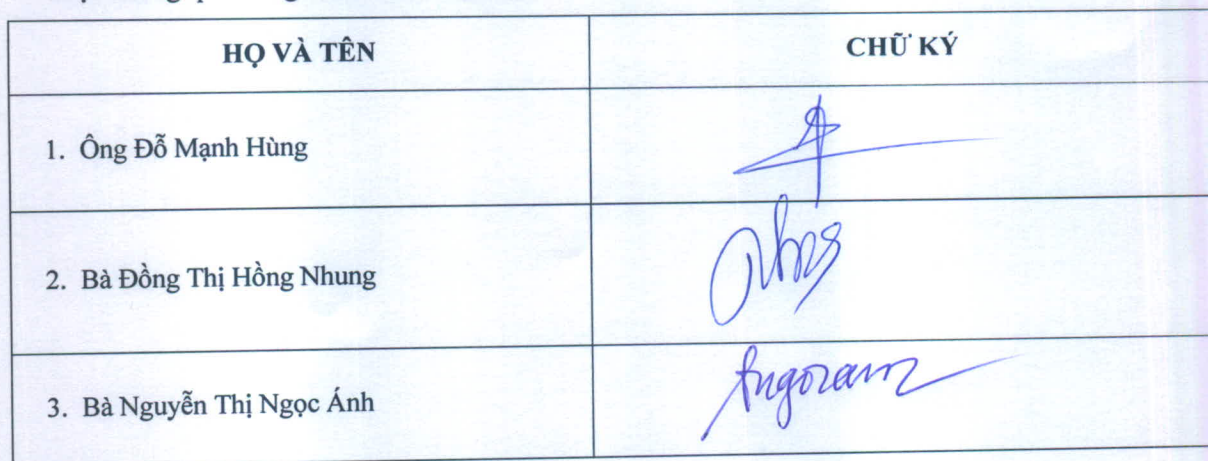 HỌ VÀ TÊN
CHỮ KÝ
1. Ông Đỗ Mạnh Hùng
2. Bà Đồng Thị Hồng Nhung
3. Bà Nguyễn Thị Ngọc Ánh